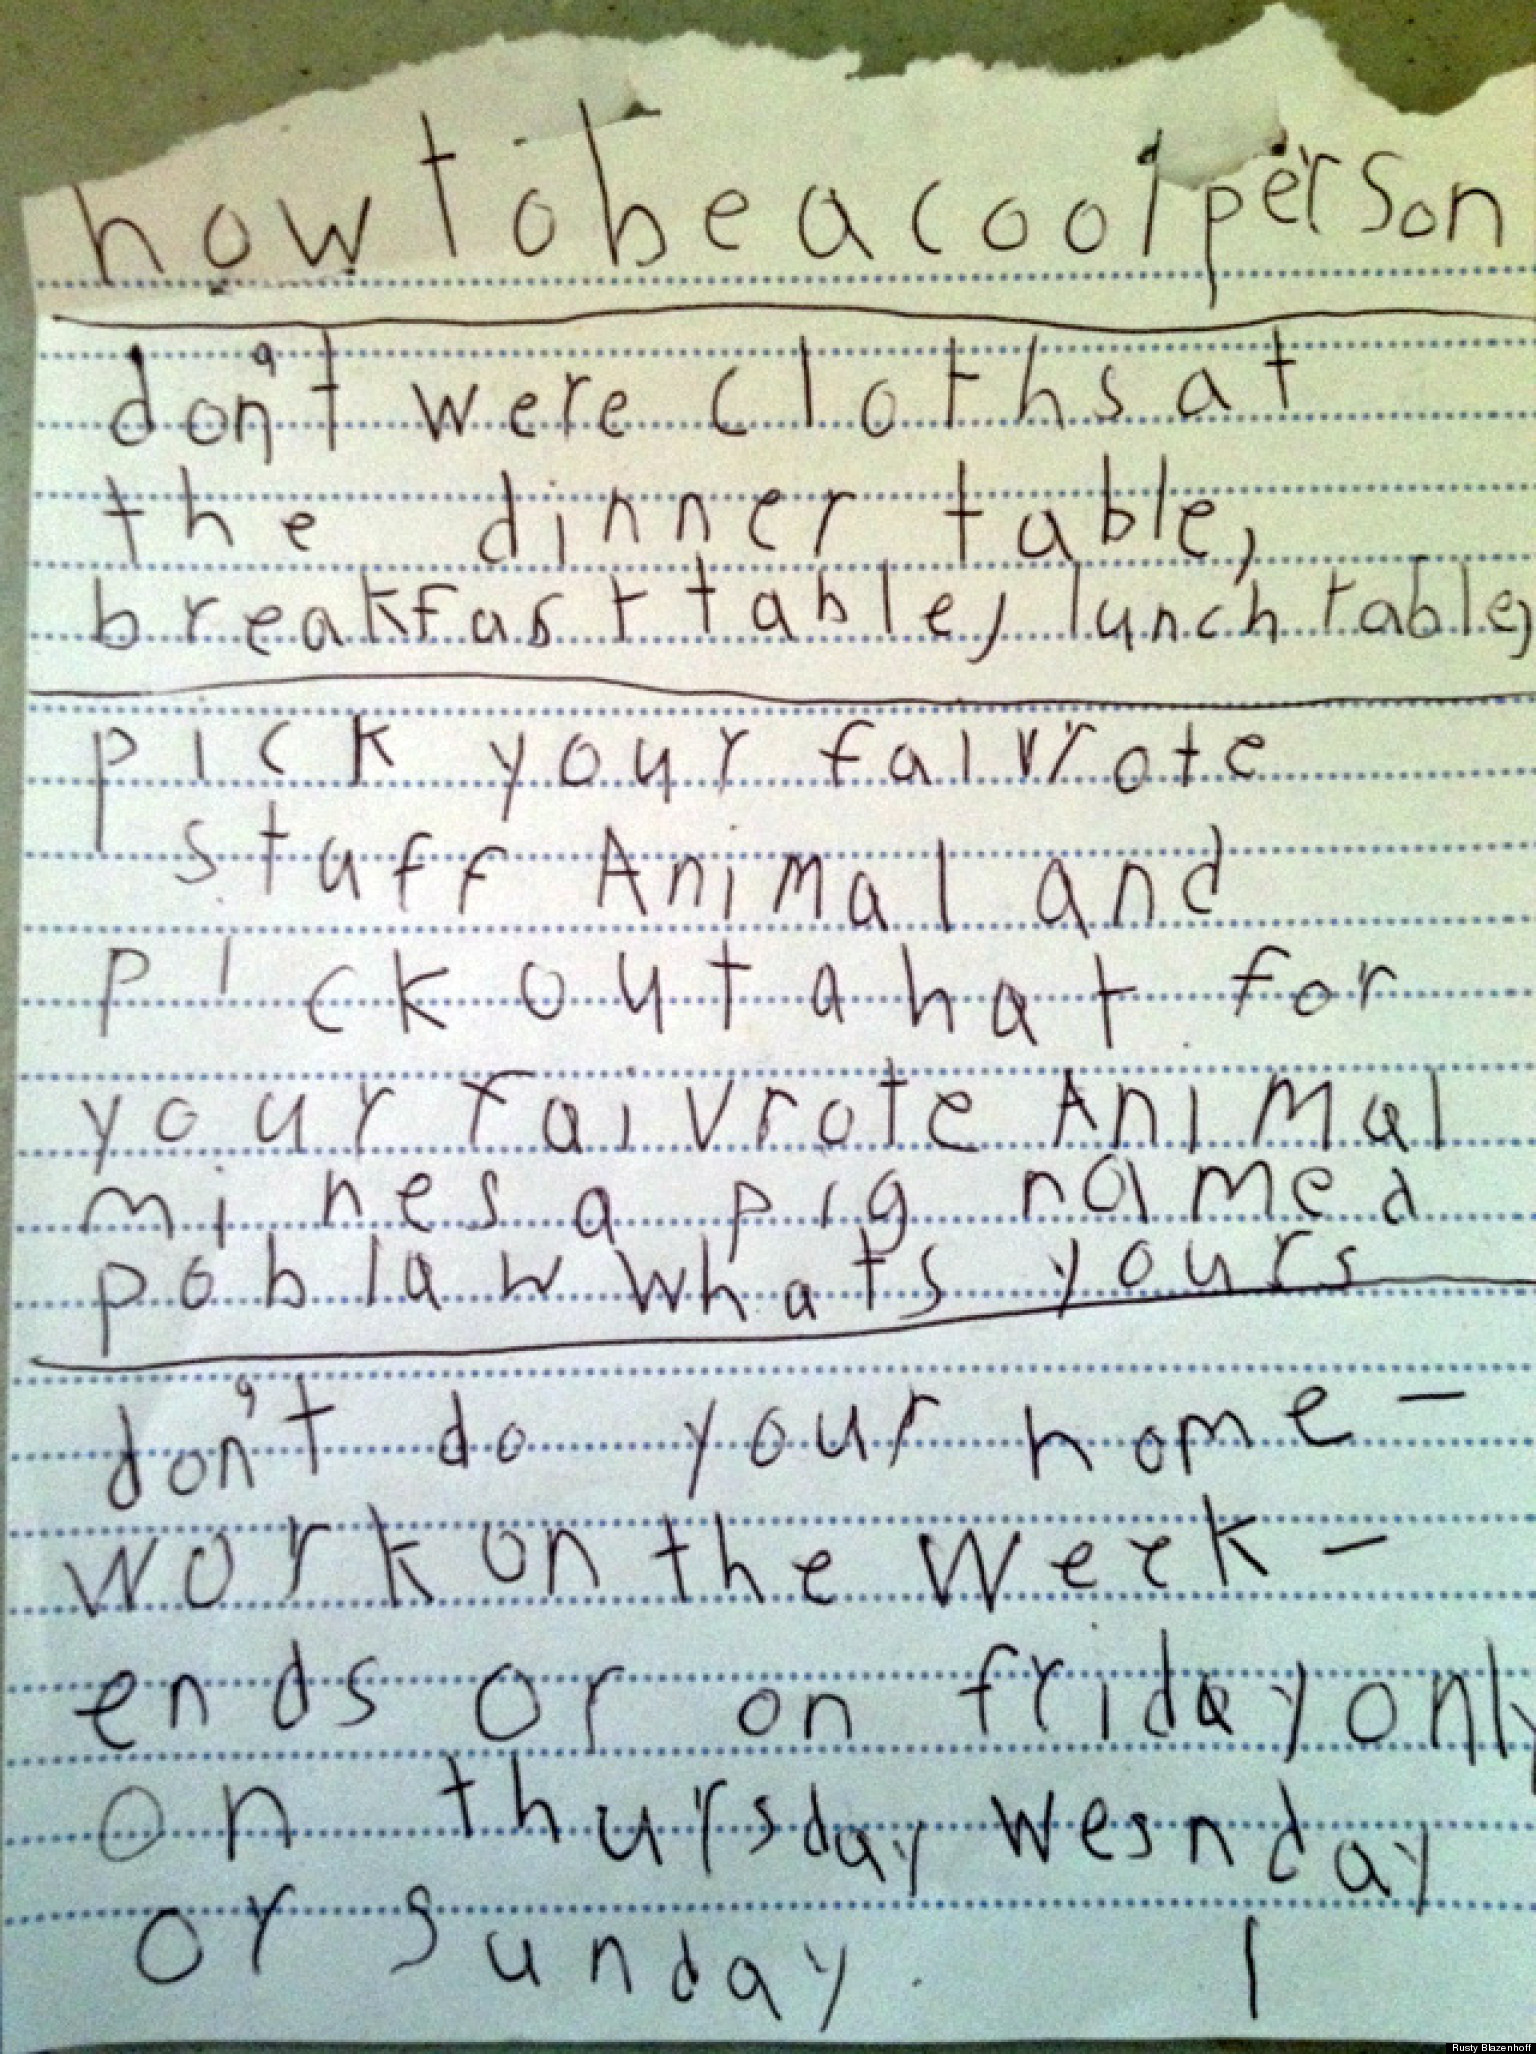 how to be a cool person
don't were cloths at
the dinner table,
breakfast table, lunch table,
pick your faivrote
stuff Animal and
pick out a hat for
your faivrote AniMal
mines a pig naMed
poblaw whats yours
don't do your home-
work on the week-
ends or on friday only
on thursday wesnday
or sunday. 1
Rusty Blazenhoff